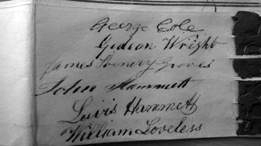 George Cole
Gideon Wright
James Groves
John Hammett
Levis Hammett
William Loveless